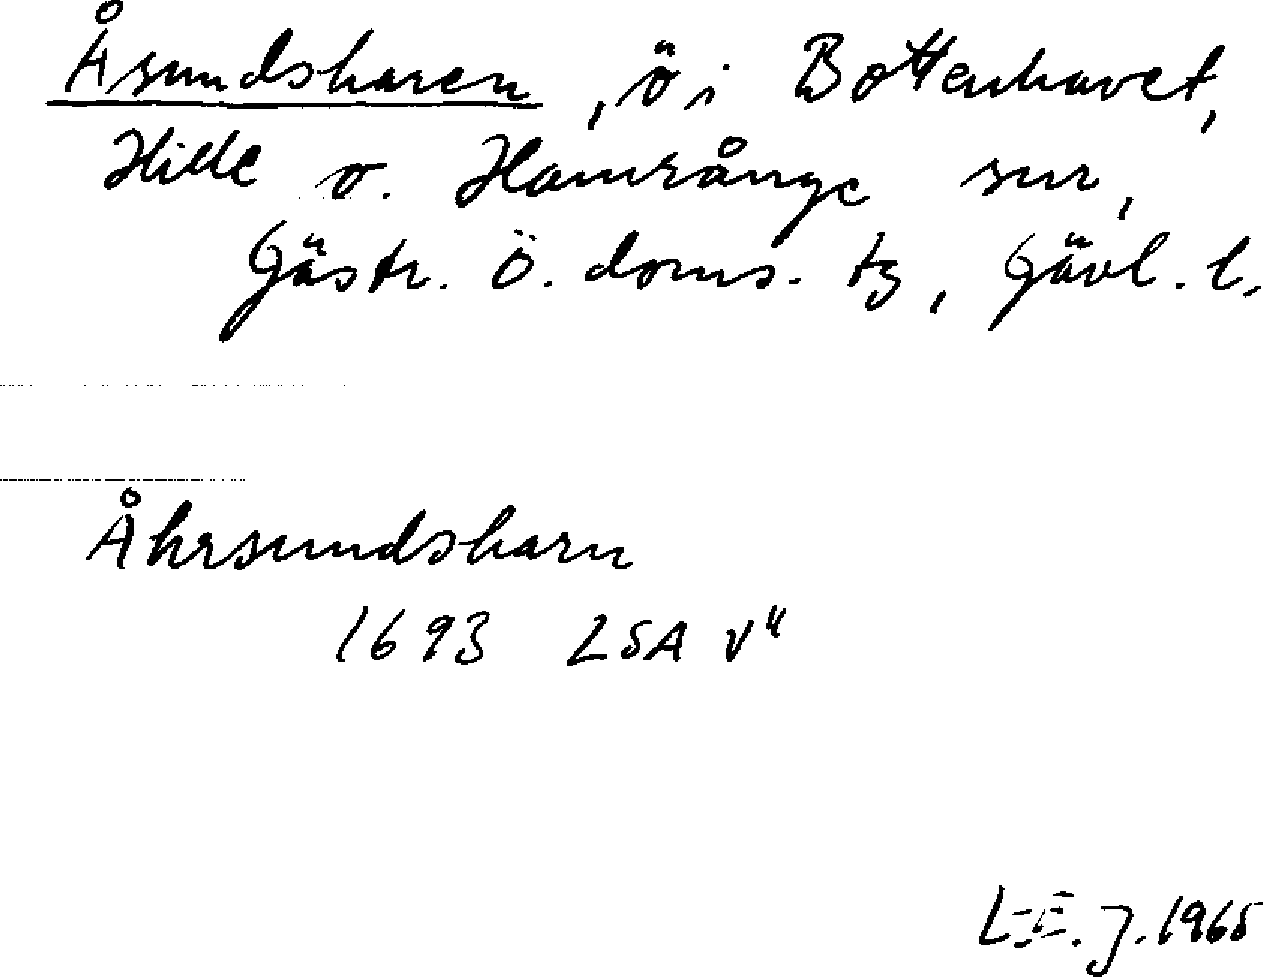 Åsundsharen, ö i Bottenhavet,
Hille o. Hamrånge snr,
Gästr. Ö. doms. tg, Gävl. l.
Åhrsundsharn
1693 LSA V"
L-E. J. 1965